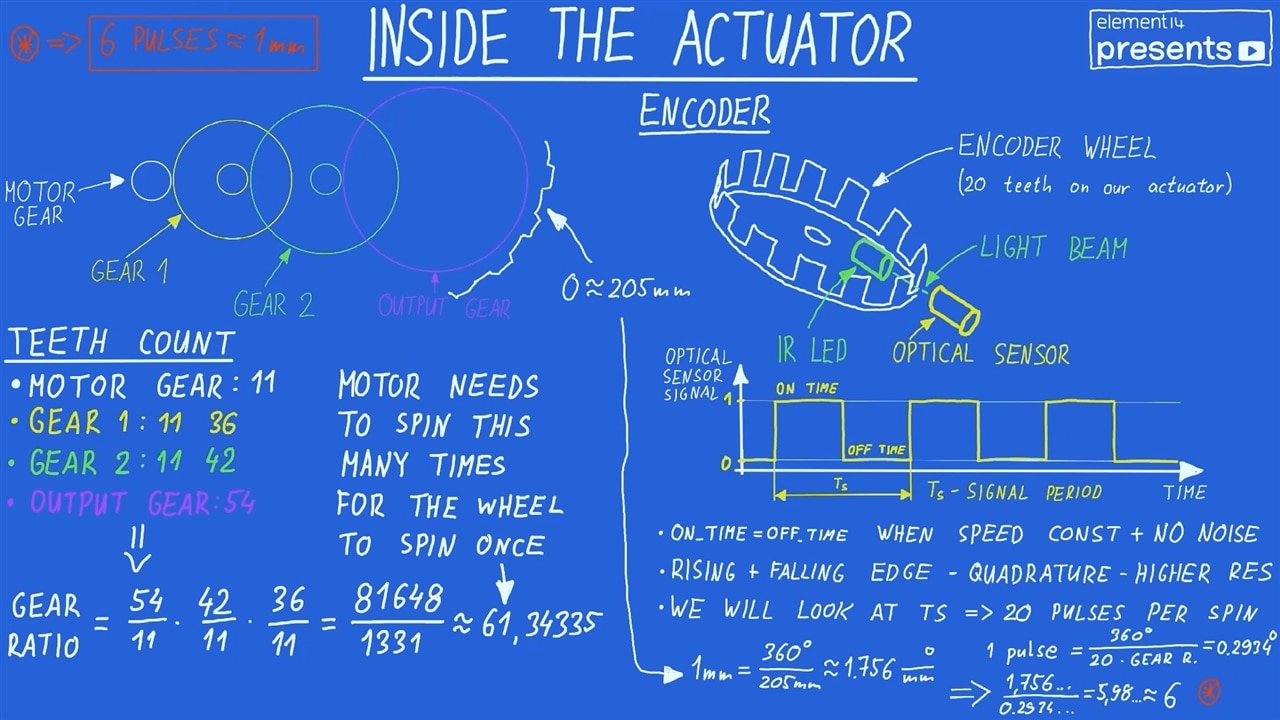 ⊛ => 6 PULSES ≈ 1mm
INSIDE THE ACTUATOR
element14
presents
ENCODER
MOTOR
GEAR
GEAR 1
GEAR 2
OUTPUT GEAR
O ≈ 205mm
ENCODER WHEEL
(20 teeth on our actuator)
LIGHT BEAM
IR LED
OPTICAL SENSOR
TEETH COUNT
• MOTOR GEAR: 11
• GEAR 1: 11 36
• GEAR 2: 11 42
• OUTPUT GEAR: 54
MOTOR NEEDS
TO SPIN THIS
MANY TIMES
FOR THE WHEEL
TO SPIN ONCE
GEAR RATIO = 54/11 · 42/11 · 36/11 = 81648/1331 ≈ 61,34335
OPTICAL
SENSOR
SIGNAL
1
0
ON TIME
OFF TIME
Ts
Ts - SIGNAL PERIOD
TIME
• ON_TIME = OFF_TIME WHEN SPEED CONST + NO NOISE
• RISING + FALLING EDGE - QUADRATURE - HIGHER RES
• WE WILL LOOK AT TS => 20 PULSES PER SPIN
1mm = 360°/205mm ≈ 1.756 °/mm
1 pulse = 360°/20 · GEAR R. = 0.2934°
=> 1,756.../0.2934... = 5,98... ≈ 6 ⊛